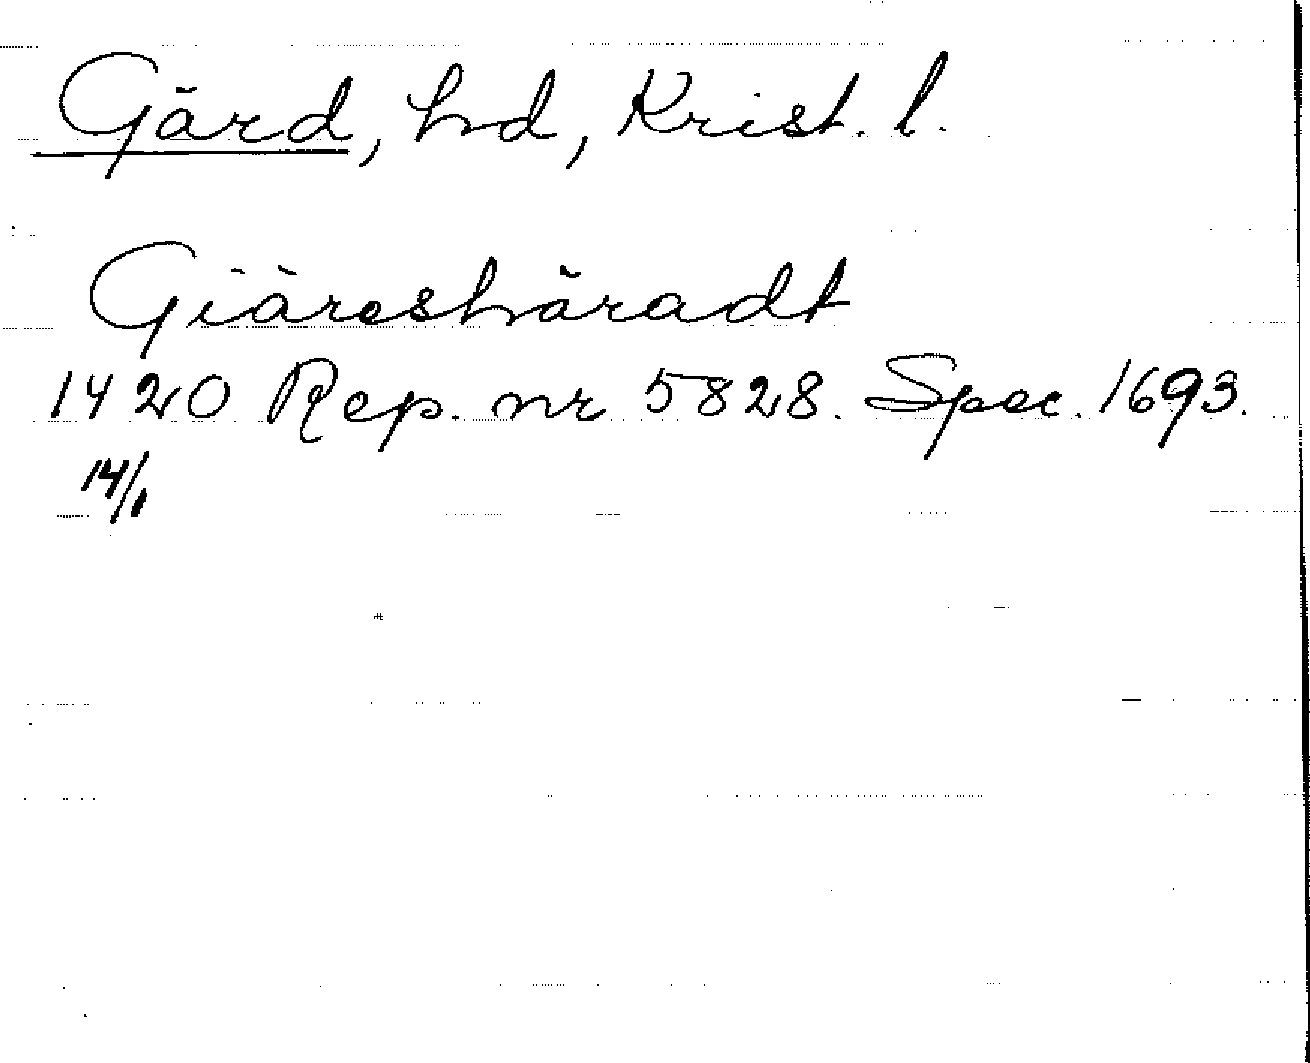 Gärd, hd, Krist. l.
Giäreshäradt
1420 Rep. nr 5828. Spec. 1693.
14/1